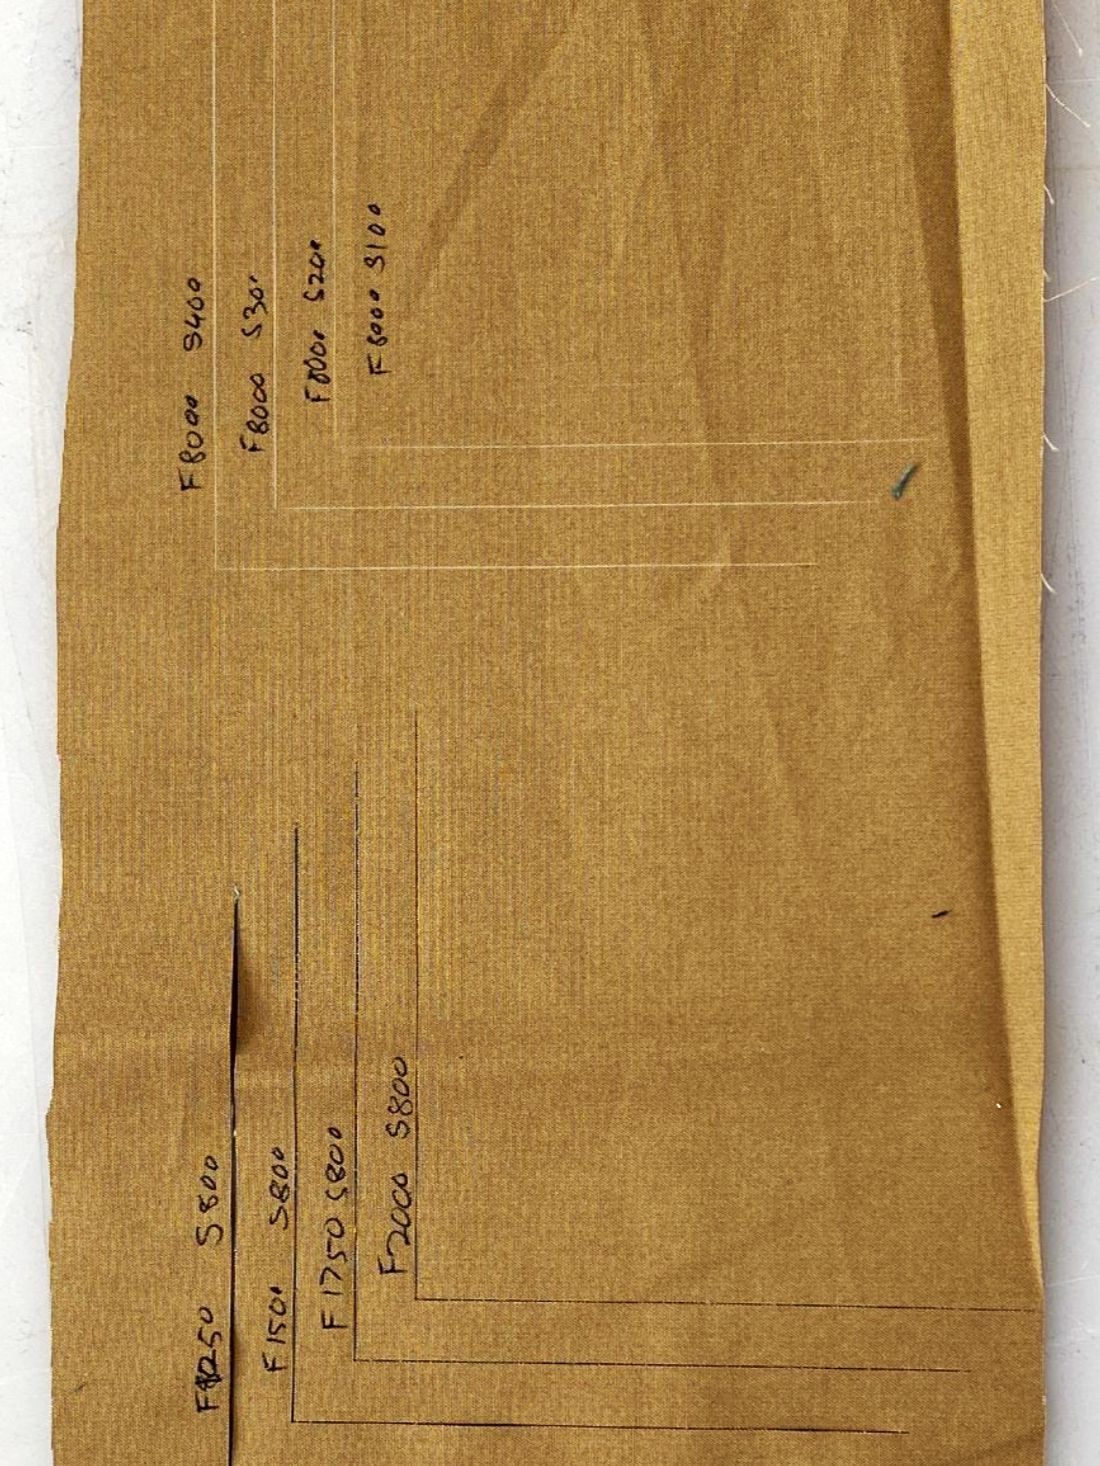 F8000 S400
F8000 S300
F8000 S200
F8000 S100
F1250 S800
F1500 S800
F1750 S800
F2000 S800